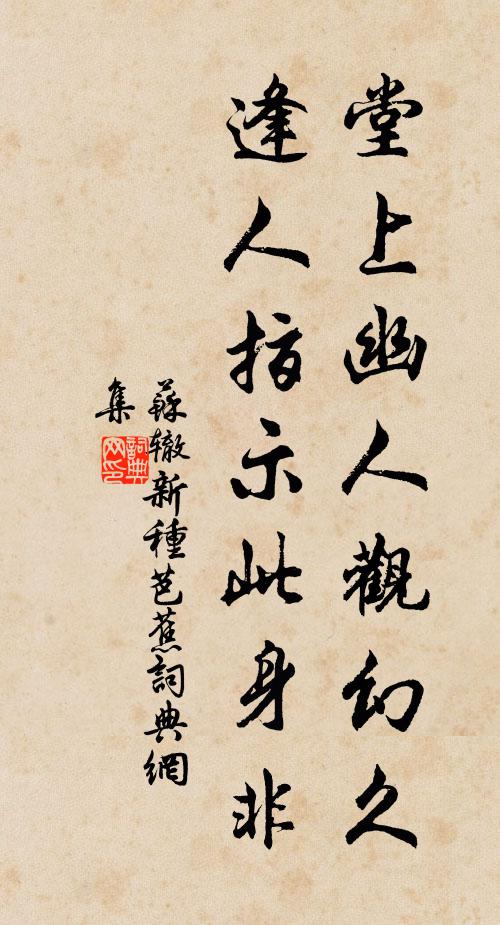 堂上幽人觀幻久
逢人指示此身非
蘇轍新種芭蕉詞典網
集
詞典
网印